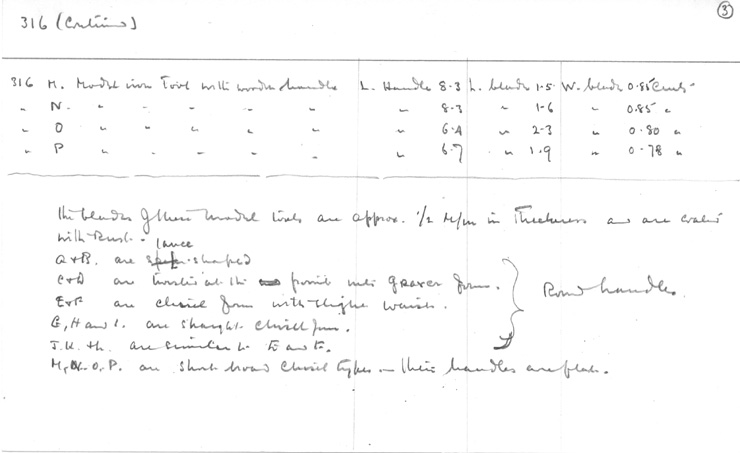 ③
316 (Continued)
316 M. Model iron Tool with wooden handle L. Handle 8.3 L. blade 1.5 W. blade 0.85 Cents
" N. " " " " " 8.3 " 1.6 " 0.85 "
" O " " " " " " 6.4 " 2.3 " 0.80 "
" P " " " " " " 6.7 " 1.9 " 0.78 "
The blades of these model tools are approx. 1/2 m/m in Thickness and are coated
with Rust.
lance
A & B. are shaped
C & D are at the point into graver form.
E & F are chisel form with slight waists.
G, H and I. are straight chisel form.
Round handles.
J. K. & L. are similar to E and F.
M, N. O. P. are short broad chisel types – their handles are flat.